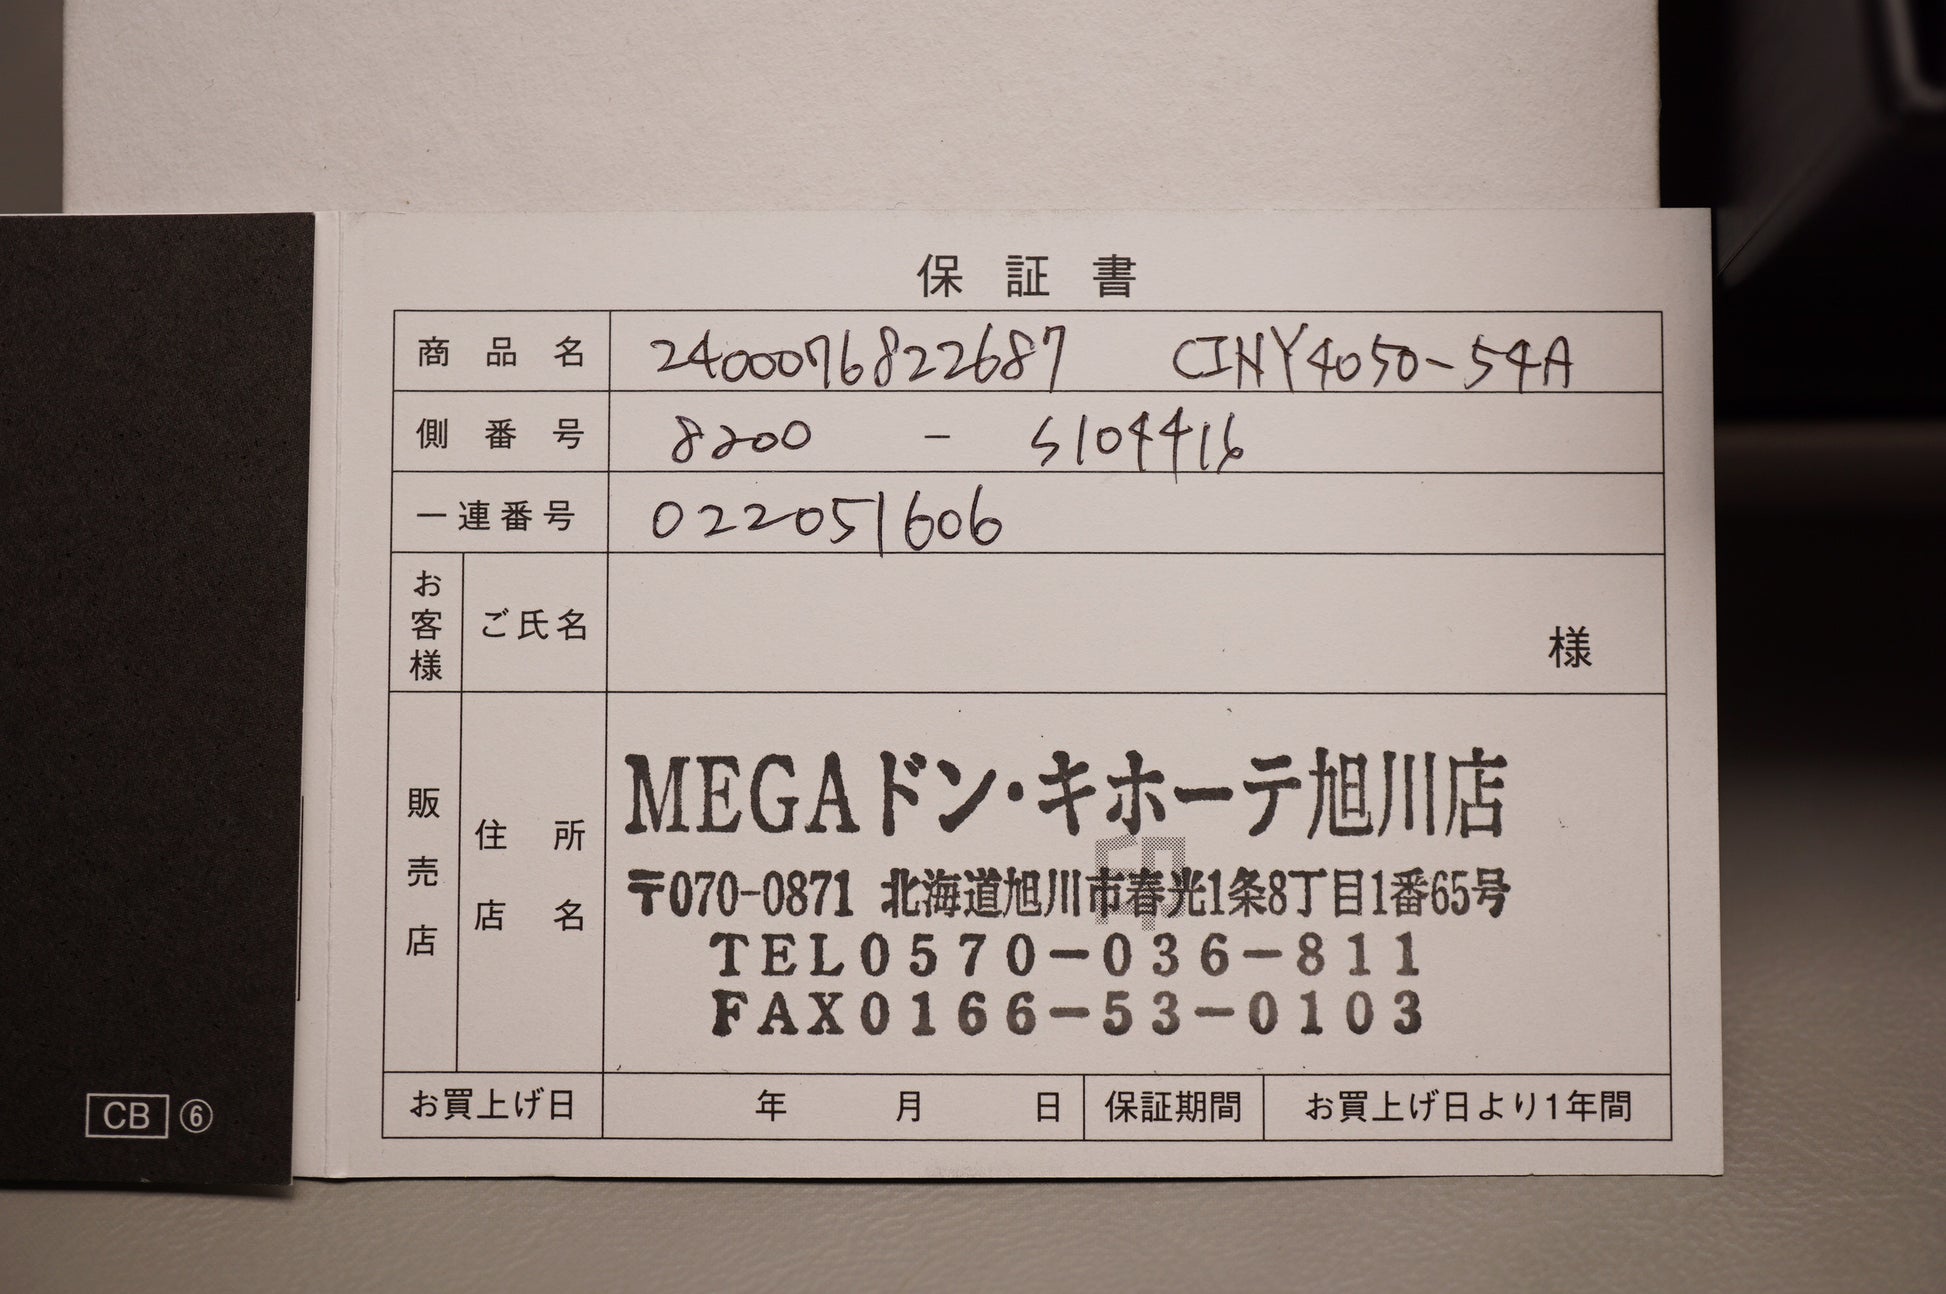 保証書
商品名 2400076822687 CINY4050-54A
側番号 8200 - S104416
一連番号 022051606
お客様 ご氏名 様
販売店 住所 店名
MEGAドン・キホーテ旭川店
印
〒070-0871 北海道旭川市春光1条8丁目1番65号
TEL0570-036-811
FAX0166-53-0103
お買上げ日 年 月 日 保証期間 お買上げ日より1年間
CB ⑥